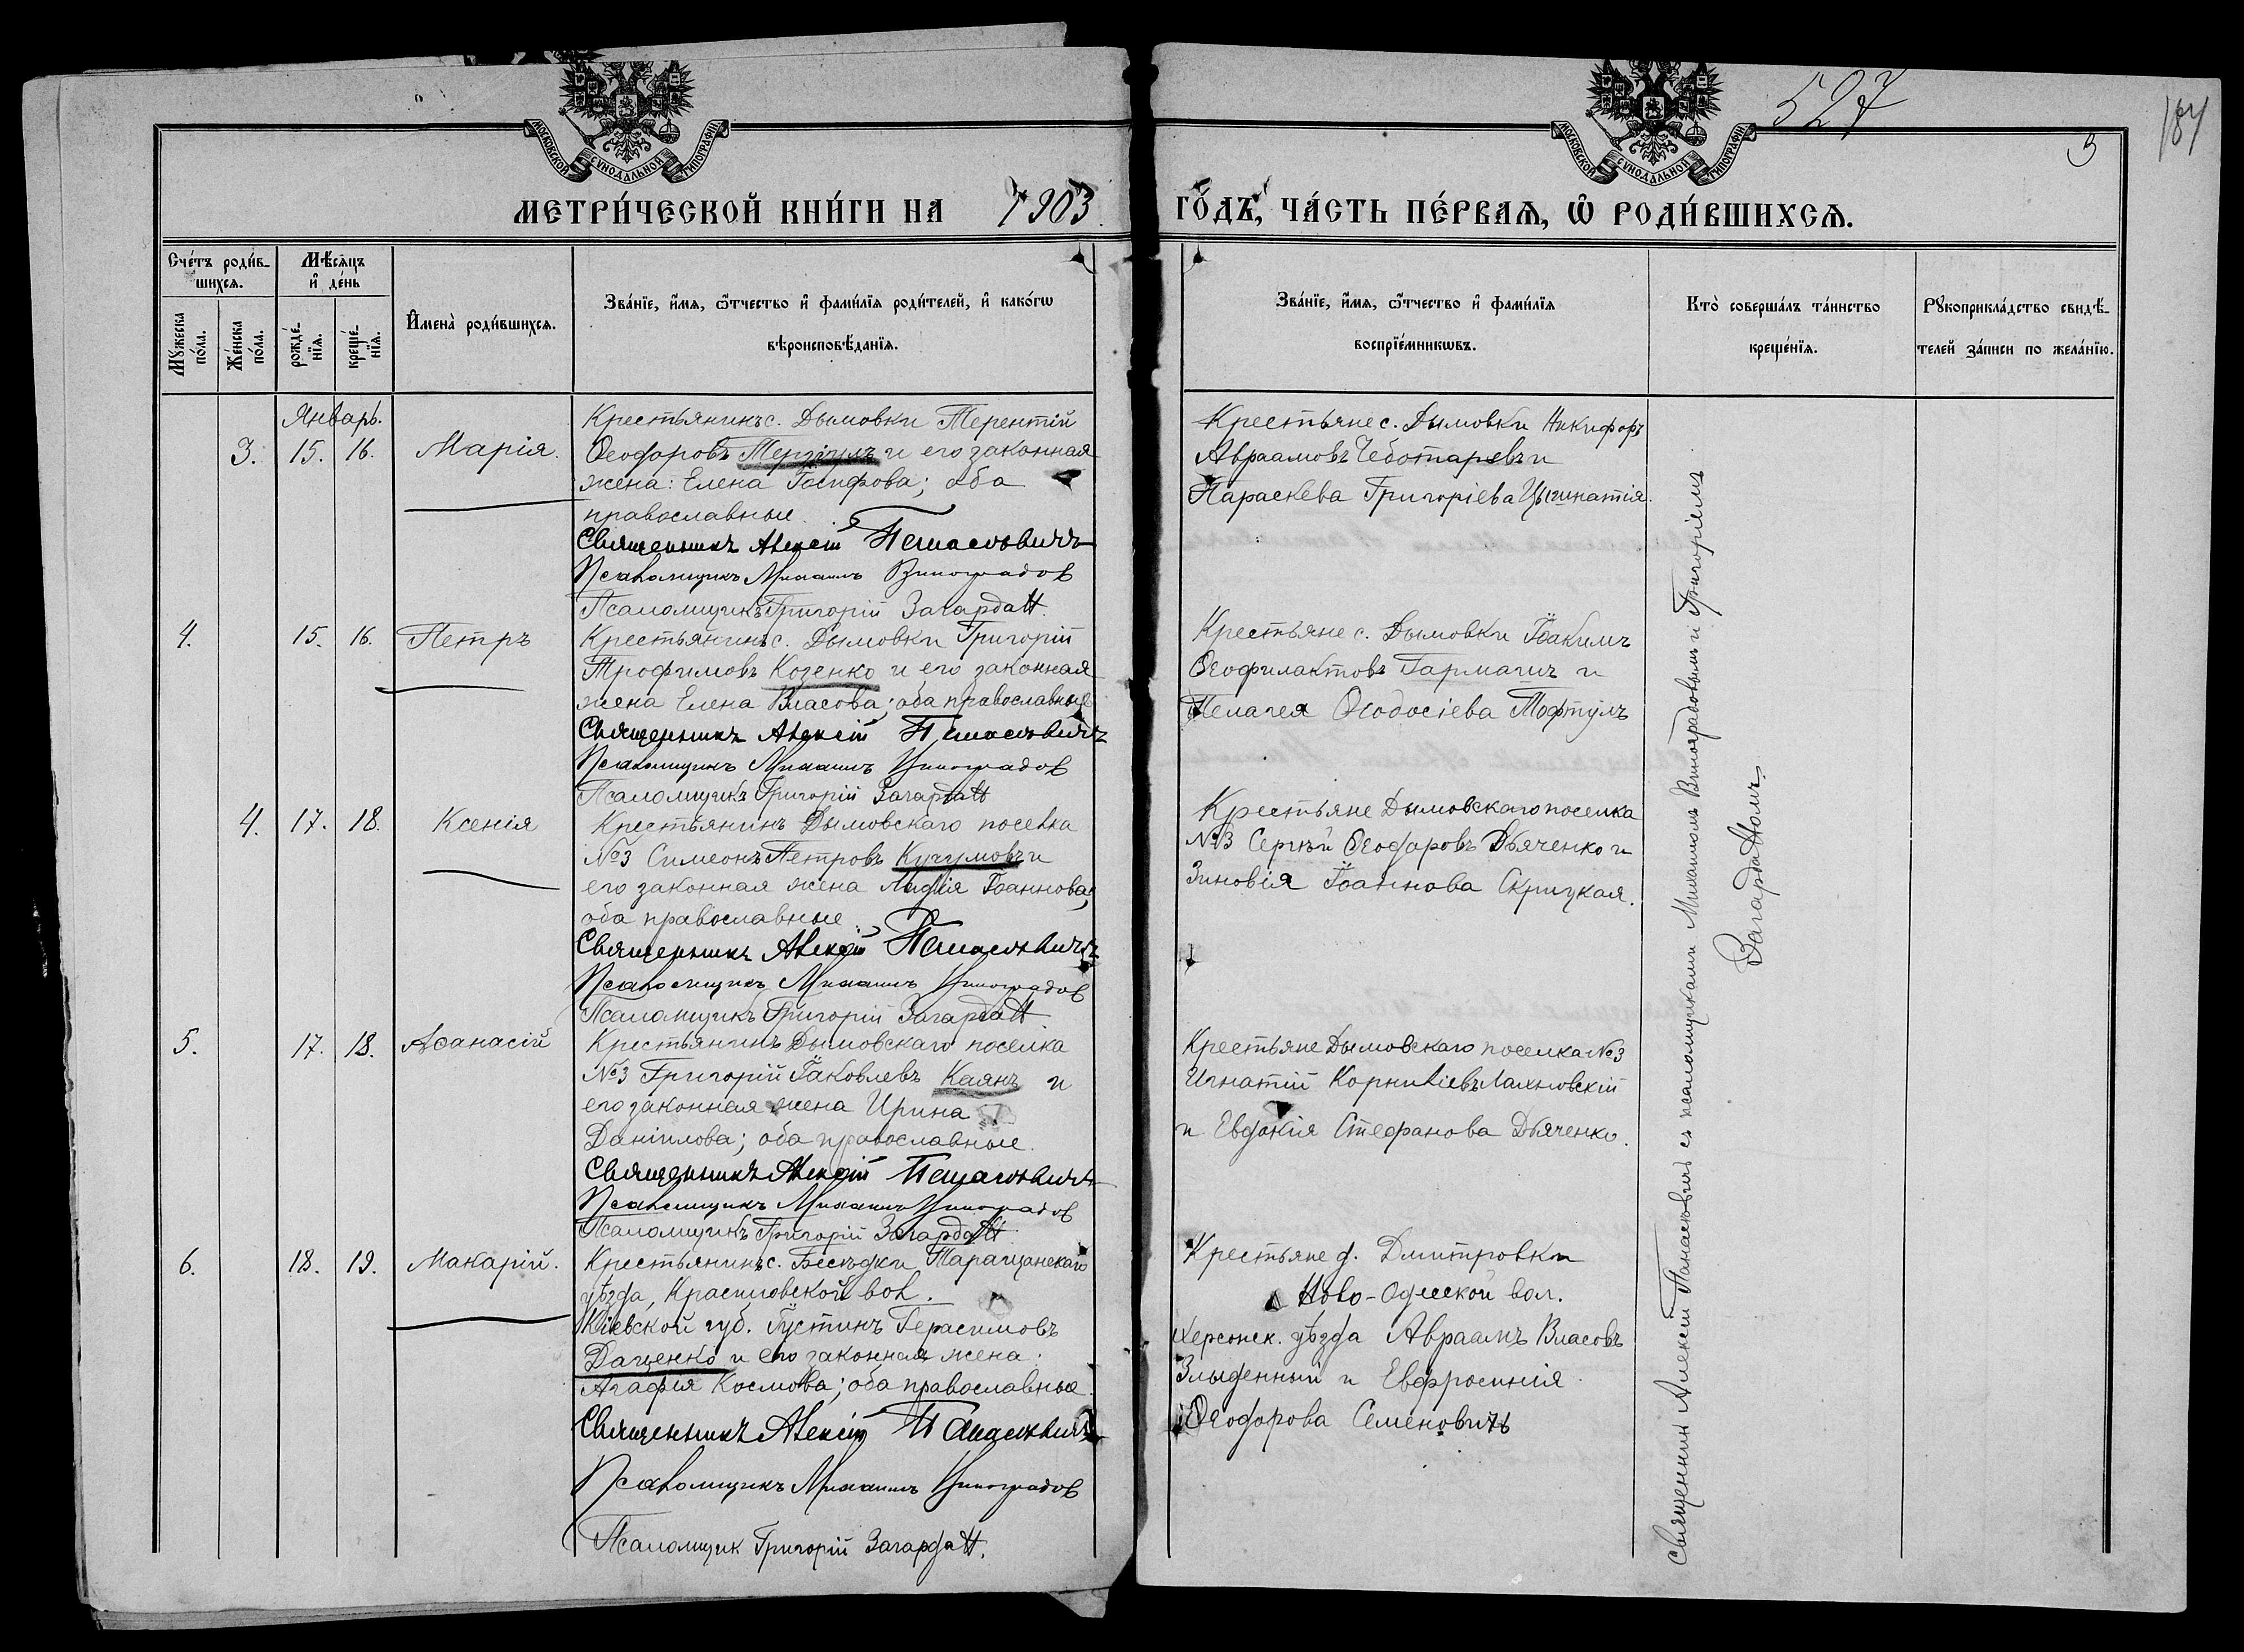 527
187
5
МОСКОВСКОЙ СѴНОДАЛЬНОЙ ТИПОГРАФІИ
МОСКОВСКОЙ СѴНОДАЛЬНОЙ ТИПОГРАФІИ
МЕТРИ́ЧЕСКОЙ КНИ́ГИ НА 1903 ГО́ДЪ, ЧА́СТЬ ПЕ́РВАѦ, Ѡ҆ РОДИ́ВШИХСѦ.
Сче́тъ роди́в-
шихсѧ.
Мꙋ́жеска по́ла.
Же́нска по́ла.
Мѣ́сѧцъ
и҆ де́нь
рожде́-
нїѧ.
креще́-
нїѧ.
И҆мена̀ роди́вшихсѧ.
Зва́нїе, и҆́мѧ, ѻ҆́тчество и҆ фами́лїѧ роди́телей, и҆ како́гѡ
вѣроисповѣ́данїѧ.
Зва́нїе, и҆́мѧ, ѻ҆́тчество и҆ фами́лїѧ
воспрїе́мникѡвъ.
Кто̀ соверша́лъ та́инство
креще́нїѧ.
Рꙋкоприкла́дство свидѣ́-
телей за́писи по жела́нїю.
Январь.
3. 15. 16. Марія.
Крестьянинъ с. Дымовки Терентій
Ѳеодоровъ и его законная
жена: Елена Іосифова; оба
православные.
Священникъ Алексій Панасевичъ
Псаломщикъ Михаилъ Виноградов
Псаломщикъ Григорій
Крестьяне с. Дымовки Никифоръ
Авраамовъ Чеботаревъ и
Параскева Григоріева
4. 15. 16. Петръ
Крестьянинъ с. Дымовки Григорій
Трофимовъ Козенко и его законная
жена Елена Власова; оба православные
Священникъ Алексій Панасевичъ
Псаломщикъ Михаилъ Виноградов
Псаломщикъ Григорій
Крестьяне с. Дымовки Іоакимъ
Ѳеофилактовъ и
Пелагея Ѳеодосіева Тофтулъ
4. 17. 18. Ксенія
Крестьянинъ Дымовскаго поселка
№3 Симеонъ Петровъ Кучумовъ и
его законная жена Лидія Іоаннова;
оба православные.
Священникъ Алексій Панасевичъ
Псаломщикъ Михаилъ Виноградов
Псаломщикъ Григорій
Крестьяне Дымовскаго поселка
№3 Сергѣй Ѳеодоровъ Дьяченко и
Зиновія Іоаннова Скрицкая.
5. 17. 18. Аѳанасій
Крестьянинъ Дымовскаго поселка
№3 Григорій Іаковлевъ Каянъ и
его законная жена Ирина
Даніилова; оба православные.
Священникъ Алексій Панасевичъ
Псаломщикъ Михаилъ Виноградов
Псаломщикъ Григорій
Крестьяне Дымовскаго поселка №3
Игнатій Корниліевъ
и Евдокія Стефанова Дьяченко.
6. 18. 19. Макарій.
Крестьянинъ с. Бесѣдки Таращанскаго
уѣзда, вол.
Кіевской губ. Іустинъ Герасимовъ
Даценко и его законная жена:
Агафія Космова; оба православные.
Священникъ Алексій Панасевичъ
Псаломщикъ Михаилъ Виноградов
Псаломщик Григорій
Крестьяне д. Дмитровки
Ново-Одесской вол.
Херсонск. уѣзда Авраамъ Власовъ
Злыденный и Евфросинія
Ѳеодорова Семеновичъ
Священник Алексѣй Панасевичъ съ псаломщиками Михаиломъ Виноградовымъ и Григоріемъ